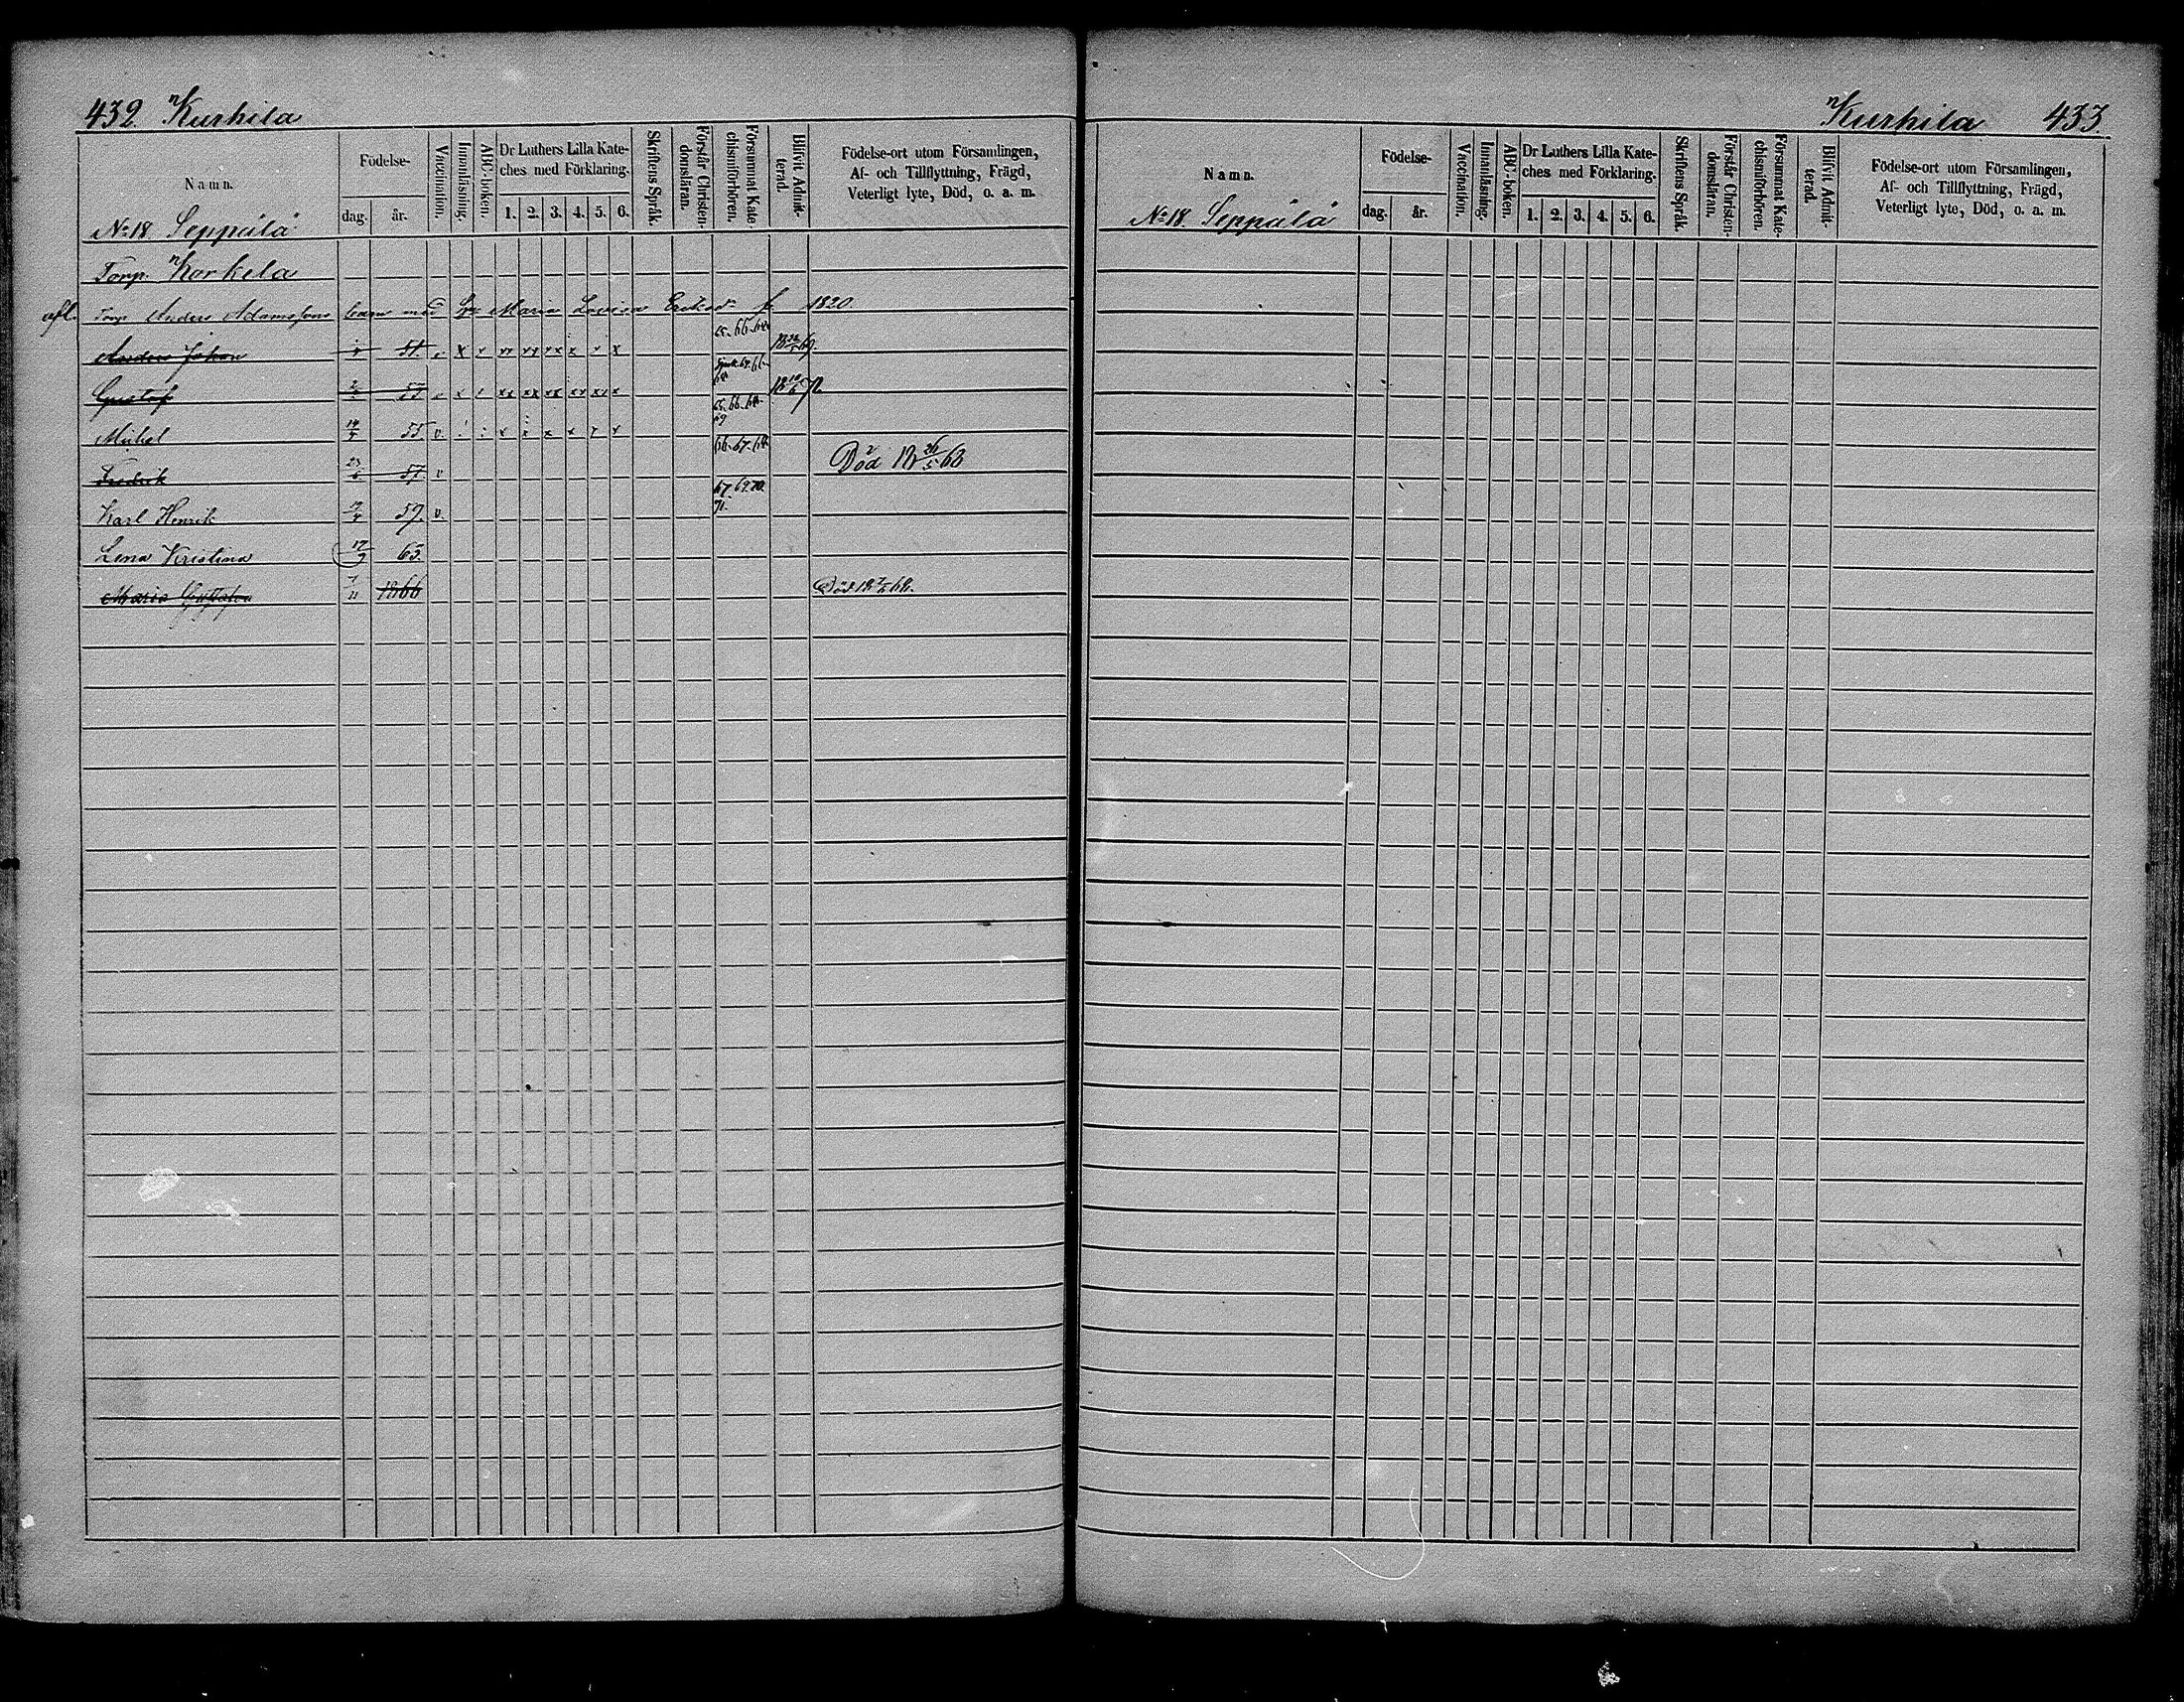 432. Kurhila
Namn.
Födelse-
dag.
år.
Vaccination.
Innanläsning.
ABC-boken.
Dr Luthers Lilla Kate-
ches med Förklaring.
1. 2. 3. 4. 5. 6.
Skriftens Språk.
Förstår Christen-
domsläran.
Försummat Kate-
chismiförhören.
Blifvit Admit-
terad.
Födelse-ort utom Församlingen,
Af- och Tillflyttning, Frägd,
Veterligt lyte, Död, o. a. m.
No 18. Seppälä
Torp. Korkela
afl. Torp. Anders Adamssons barn med Maria Lovisa f. 1820.
Anders Johan 51. x x xx xx xx x x x 65. 66. 68
Gustaf 53 xx xx xx xx xx x
Mikel 19/4 55. v. x x x x x x 65. 66. 68. 69
Fredrik 23/6 57. v 66. 67. 68 Död 18 26/5 68
Karl Henrik 57. v. 67. 69. 70. 71.
Lena Kristina 17/9 63.
Maria Gustafva 7/11 1866 Död 18 68.
Kurhila 433.
Namn.
Födelse-
dag.
år.
Vaccination.
Innanläsning.
ABC-boken.
Dr Luthers Lilla Kate-
ches med Förklaring.
1. 2. 3. 4. 5. 6.
Skriftens Språk.
Förstår Christen-
domsläran.
Försummat Kate-
chismiförhören.
Blifvit Admit-
terad.
Födelse-ort utom Församlingen,
Af- och Tillflyttning, Frägd,
Veterligt lyte, Död, o. a. m.
No 18. Seppälä